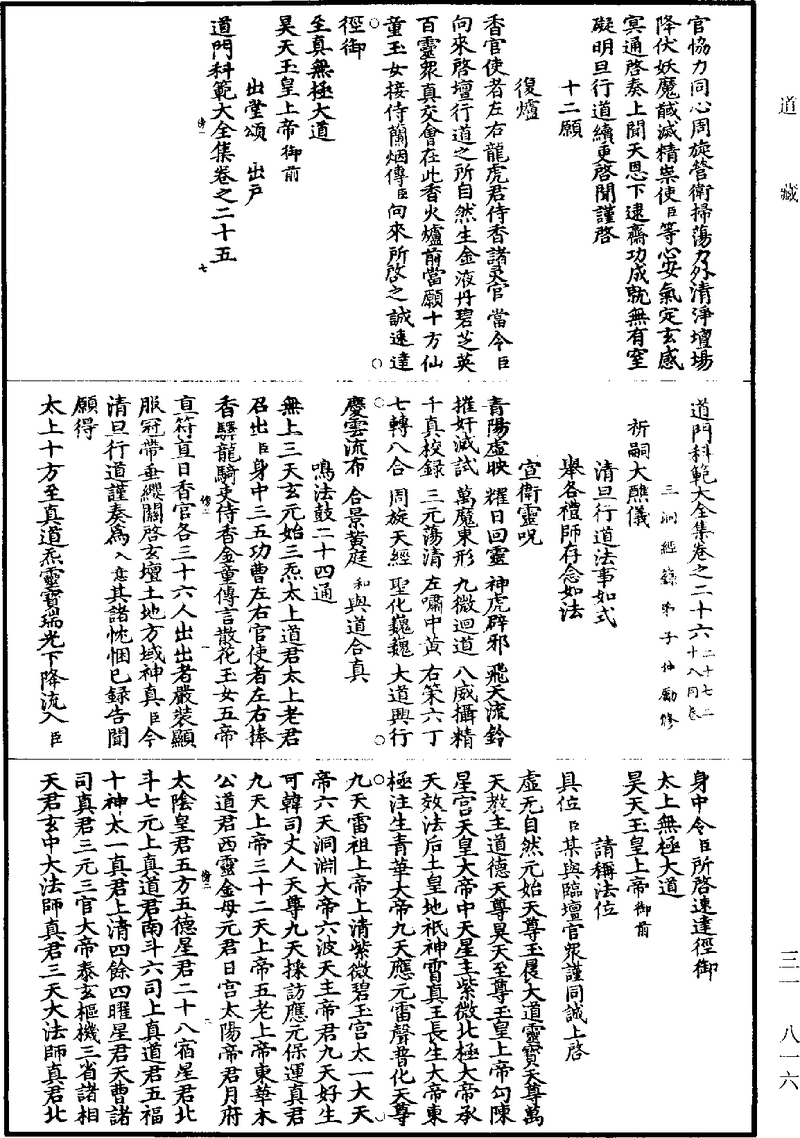 道藏
官協力同心周旋營衛掃蕩力外清淨壇場
降伏妖魔馘滅精祟使臣等心安氣定玄感
冥通啓奏上聞天恩下逮齋功成就無有窒
礙明旦行道續更啓聞謹啓
十二願
復爐
香官使者左右龍虎君侍香諸灵官當令臣
向來啓壇行道之所自然生金液丹碧芝英
百靈衆真交會在此香火爐前當願十方仙
童玉女接侍蘭烟傳臣向來所啓之誠速達
徑御
至真無極大道
昊天玉皇上帝御前
出堂頌 出戶
道門科範大全集卷之二十五
七
道門科範大全集卷之二十六二十七二十八同卷
三洞經籙弟子仲勵修
祈嗣大醮儀
清旦行道法事如式
舉各禮師存念如法
宣衛靈呪
青陽虛映 耀日回靈 神虎辟邪 飛天流鈴
摧奸滅試 萬魔束形 九微迴道 八威攝精
千真校錄 三元蕩清 左嘯中黃 右策六丁
七轉八合 周旋天經 聖化巍巍 大道興行
慶雲流布 合景黃庭 和與道合真
鳴法鼓二十四通
無上三天玄元始三炁太上道君太上老君
召出臣身中三五功曹左右官使者左右捧
香驛龍騎吏侍香金童傳言散花玉女五帝
直符直日香官各三十六人出出者嚴裝顯
服冠帶垂纓關啓玄壇土地方域神真臣今
清旦行道謹奏爲入意其諸忱悃已録告聞
願得
太上十方至真道炁靈寶瑞光下降流入臣
身中令臣所啓速達徑御
太上無極大道
昊天玉皇上帝御前
請稱法位
具位臣某與臨壇官衆謹同誠上啓
虛无自然元始天尊玉晨大道靈寶天尊萬
天教主道德天尊昊天至尊玉皇上帝勾陳
星宮天皇大帝中天星主紫微北極大帝承
天效法后土皇地祇神霄真王長生大帝東
極注生青華大帝九天應元雷聲普化天尊
九天雷祖上帝上清紫微碧玉宮太一大天
帝六天洞淵大帝六波天主帝君九天好生
可韓司丈人天尊九天採訪應元保運真君
九天上帝三十二天上帝五老上帝東華木
公道君西靈金母元君日宮太陽帝君月府
太陰皇君五方五德星君二十八宿星君北
斗七元上真道君南斗六司上真道君五福
十神太一真君上清四餘四曜星君天曹諸
司真君三元三官大帝泰玄樞機三省諸相
天君玄中大法師真君三天大法師真君北
三一 八一六